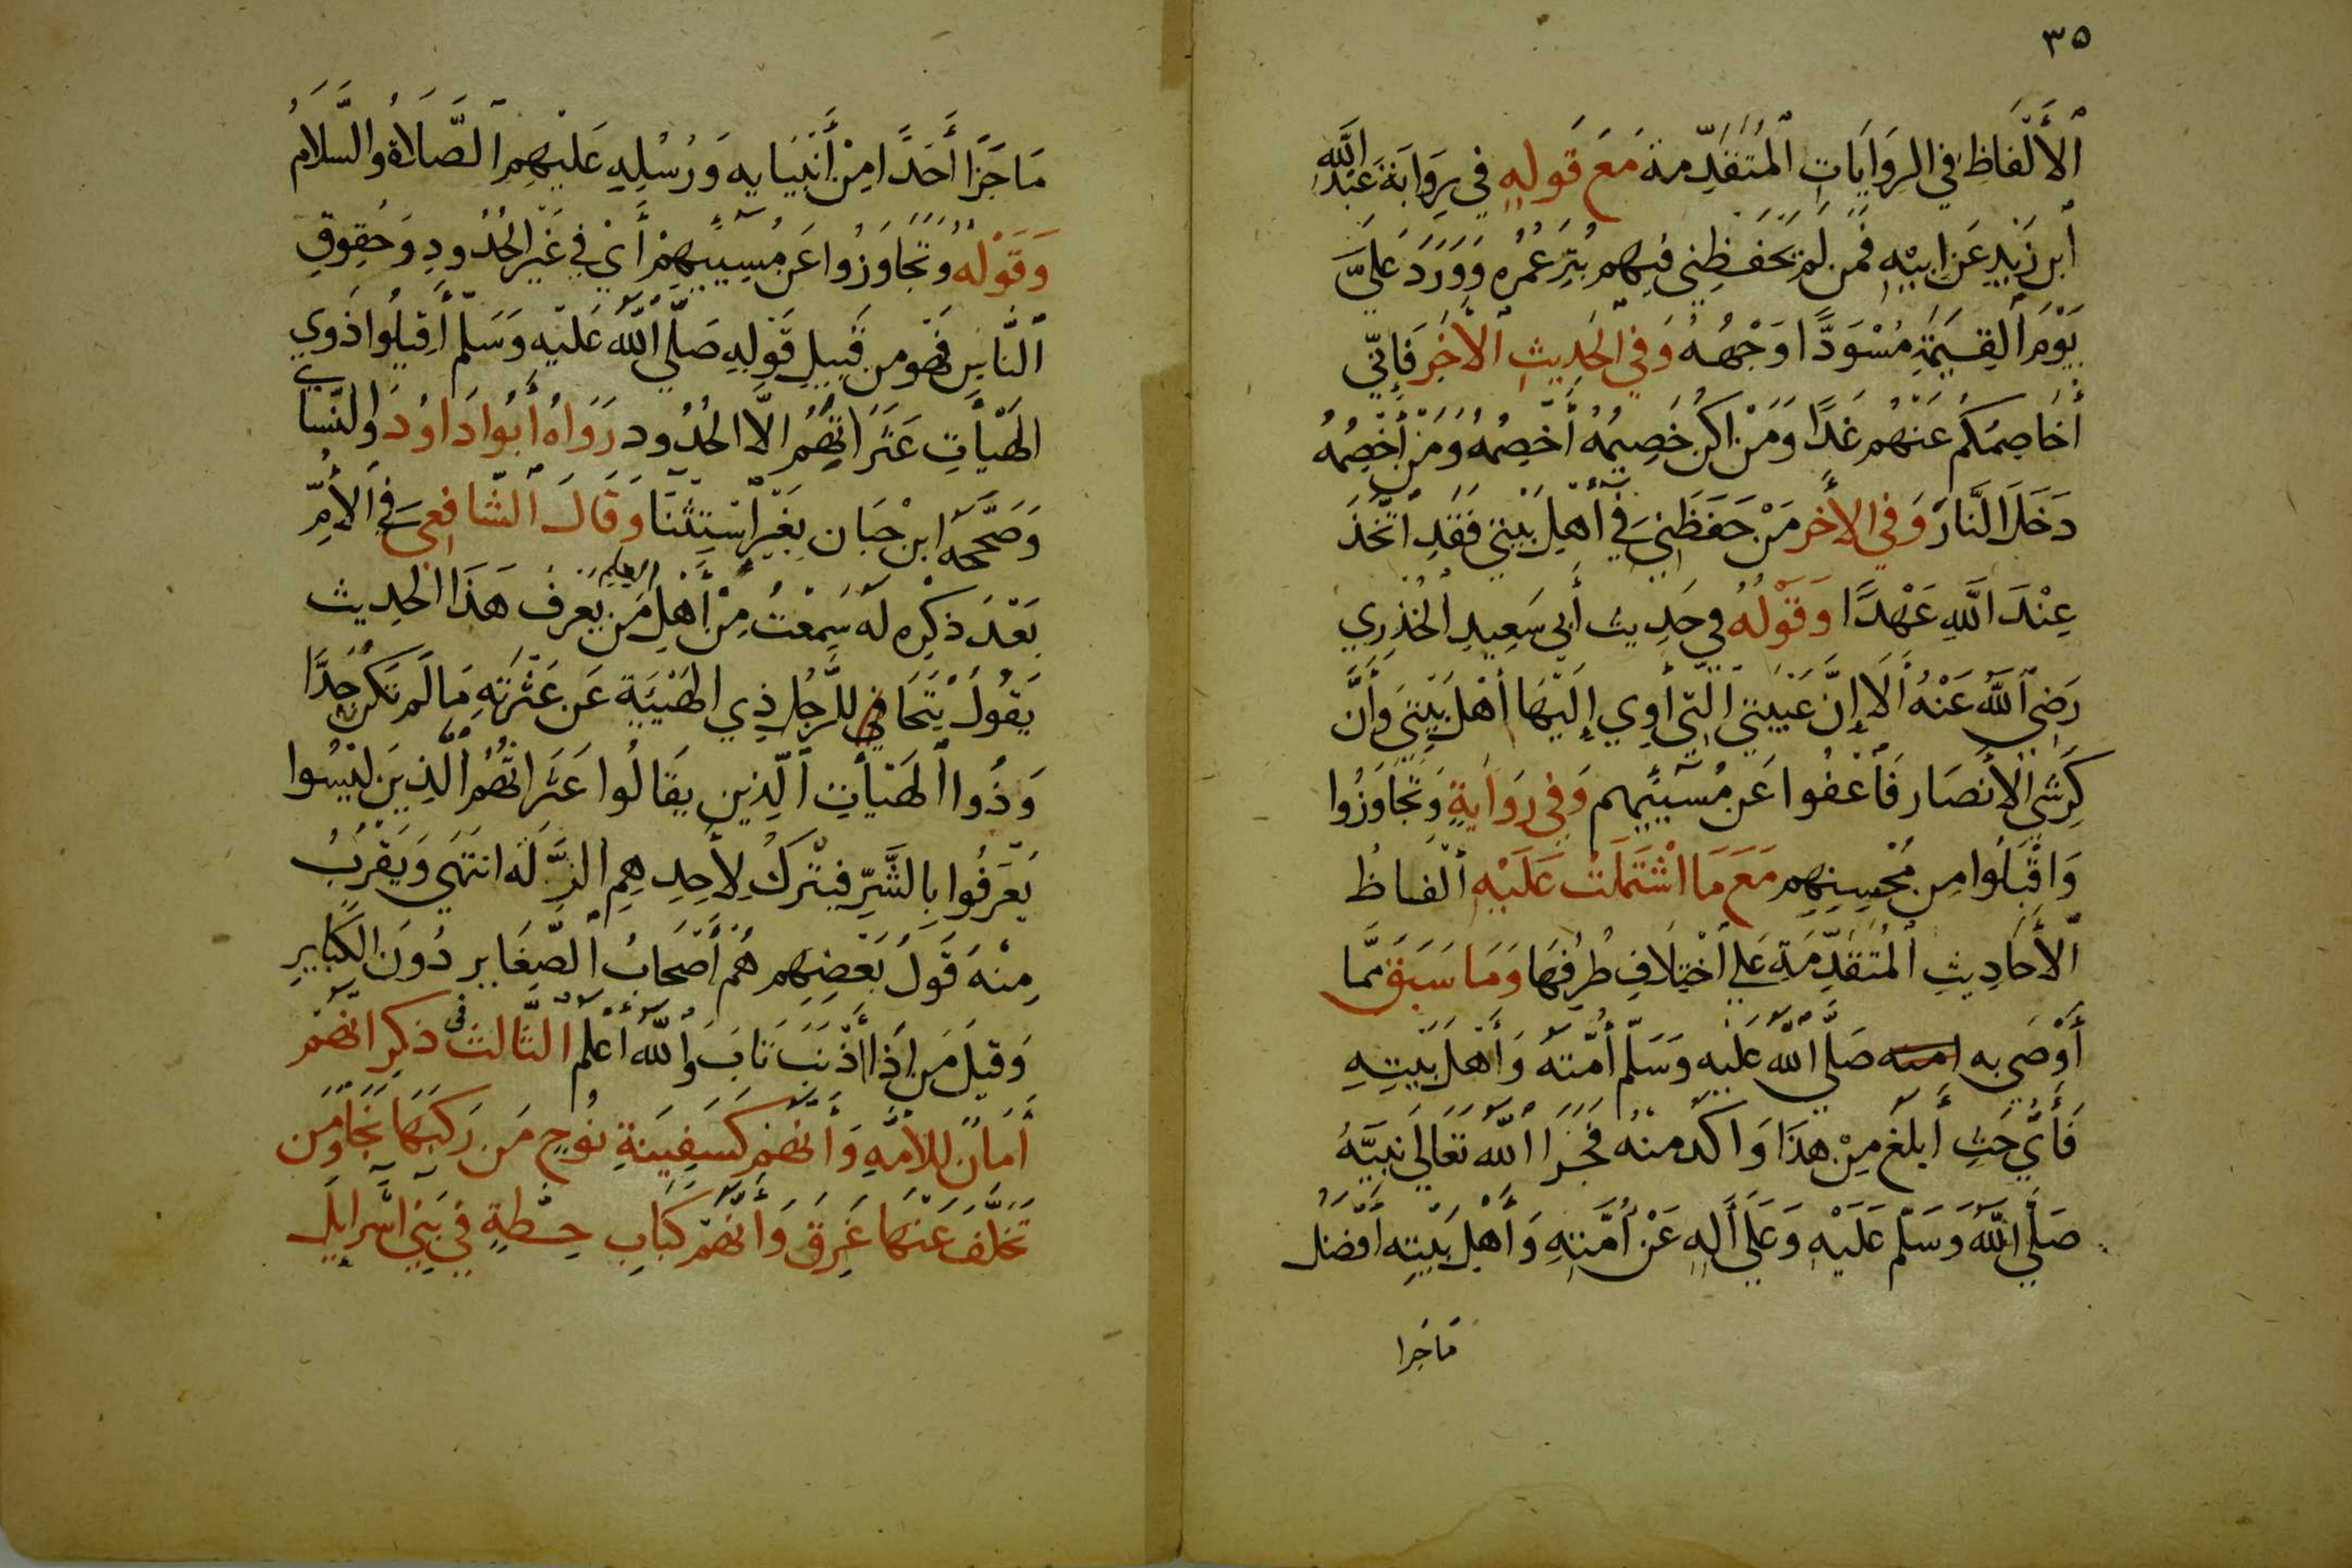 ٣٥
ٱلأَلْفَاظِ فِي الرِوَايَاتِ ٱلْمُتَقَدِّمة مَعَ قَولِهِ فِي رِوَايَة عَبْدِ اللَّهِ
ٱبن زَيْدٍ عَن ابيْهِ فَمَن لَمْ يَحْفَظِنِي فِيهِم بُتِرَ عُمُرُه وَوَرَدَ عَلَىَّ
يَوْمَ ٱلْقِيَمَةِ مُسْوَدًّا وَجْهُهُ وَفِي ٱلْحَدِيثِ ٱلْأَخَرِ فَاِنِّي
أُخَاصِمُكُم عَنْهُم غَدًا وَمَنْ اكُن خَصِيمُهُ أَخْصِمُهُ وَمَنْ أَخْصِمُهُ
دَخَلَ النَّارَ وَفِي الأَخَر مَنْ حَفَظَنِي فِي أَهْلِ بَيْتِي فَقَدِ ٱتَّخَذَ
عِنْدَ اللَّهِ عَهْدًا وَقَوْلُهُ فِي حَدِيث أَبِي سَعِيدِ الْخُدْرِي
رَضِيَ ٱللَّهُ عَنْهُ أَلَا إِنَّ عَيْبَتِيَ الَّتِي أَوِي إِلَيْهَا أَهْلَ بَيْتِيَ وَأَنَّ
كِرشَي الأَنْصَار فَٱعْفُوا عَن مُسِيئِهِم وَفِي رِوَايَةٍ وَتَجَاوَزُوا
وَاقْبَلُوا مِن مُحْسِنِهِم مَعَ مَا اشْتَمَلَتْ عَلَيْهِ أَلْفَاظُ
ٱلأَحَادِيثِ ٱلْمُتَقَدِّمَةِ عَلَي ٱخْتِلَافِ طُرُقِهَا وَمَا سَبَقَ مِمَّا
أَوْصَي به امته صَلَّي ٱللَّهُ عَلَيْهِ وَسَلَّم أُمَّتَهُ وَأَهْلَ بَيْتِهِ
فَأَيُّ حَثٍ أَبْلَغُ مِنْ هَذَا وَاكَدُ مِنْهُ فَجَزَا ٱللَّهُ تَعَالَي نَبِيَّهُ
صَلَّي اللَّهُ وَسَلَّم عَلَيْهِ وَعَلَي أَلِهِ عَنْ أُمَّتِهِ وَأَهْلِ بَيْتِهِ أَفْضَلَ
مَا جَزا
مَا جَزَا أَحَدًا مِنْ أَنْبِيَايِهِ وَرُسُلِهِ عَلَيْهِمِ ٱلصَّلَاةُ والسَّلَامُ
وَقَوْلُهُ وَتَجَاوَزُوا عَن مُسِيئِهِمْ أَيْ فِي غَيْرِ الْحُدُودِ وَحُقُوقِ
ٱلنَّاسِ فَهُو مِن قَبِيلِ قَوْلِهِ صَلَّي ٱللَّهُ عَلَيْهِ وَسَلَّم أَقِيلُوا ذَوِي
الْهَيْأَتِ عَثَرَاتِهُمُ الَّا الْحُدُود رَوَاهُ أَبُوا دَاوُدَ وَالنَّسَايي
وَصَحَّحَهُ ابن حِبَان بِغَيْرِ ٱسْتِثْنَا وَقَالَ ٱلشَّافِعِي فِي الأُمِّ
بَعْدَ ذِكْرِه لَهُ سَمِعْتُ مِنْ أَهْلِ العلم مَن يَعْرِفُ هَذَا الْحِدِيث
يَقُولُ يَتَجَافَي لِلرَّجُلِ ذِي الْهَيْئَةِ عَن عَثْرَتِهِ مَا لَم تَكُن حَدًّا
وَذُوا الْهَيْأَتِ ٱلَّذِين يُقَالُوا عَثَرَاتُهُمُ ٱلَّذِينَ لَيْسُوا
يُعْرَفُوا بِالشَّرِّ فيتْرَكُ لِأَحِدِهِمِ الزَّلَه انْتَهَي وَيَقْرُبُ
مِنْهُ قَوْلُ بَعْضِهِم هُمْ أَصْحَابُ ٱلصَّغَايرِ دُونَ الْكَبَايِرِ
وَقِيلَ مَن إِذَا أَذْنَبَ تَابَ وَٱللَّهُ أَعْلَم الثَّالث فِي ذكرِ انَّهُمْ
أَمَانٌ لِلأُمَّةِ وَأَنَّهُمْ كَسَفِينَةِ نُوحٍ مَن رَكِبَهَا نَجَا وَمَن
تَخَلَّفَ عَنْهَا غَرِقَ وَأَنَّهُمْ كَبَابِ حِطَّةٍ فِي بَنِي إِسْرَايِلَ